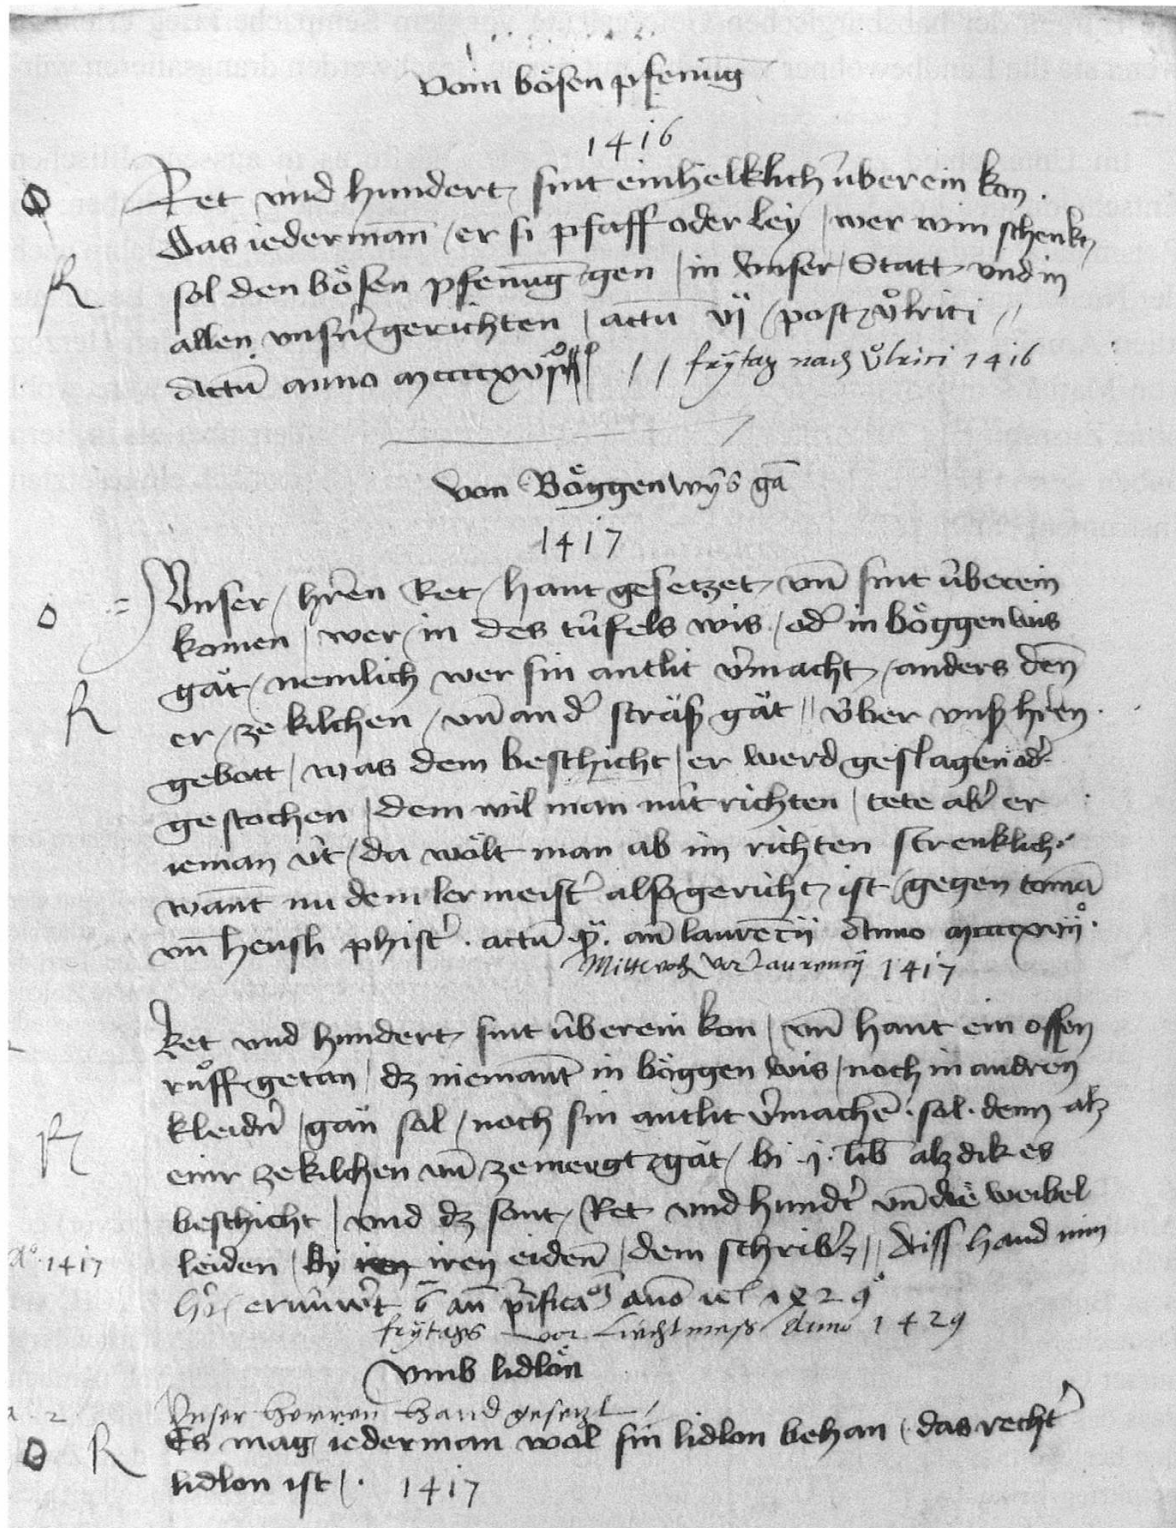 Vom bösen pfennig
1416
Ret vnd hundert sint einhelklich überein kon.
Das iederman̄ / er si pfaff oder ley / wer win schenkt
sol den bösen pfenn̄ig gen / in vnser Statt vnd in
allen vnsn̄ gerichten / actū vj post vͦlrici //
Actū anno mccccxvj // frÿtag nach Vͦlrici 1416
Von Böggenwÿs gā
1417
Vnser hr̄en Ret hant gesetzet vn̄ sint überein
komen / wer in des tüfels wis / od̄ in böggenwis
gät / nemlich wer sin antlit v̄macht / anders den̄
er ze kilchen / vn̄ an d̄ sträß gät // über vnß hr̄en
gebott / was dem beschicht / er werd geslagen od̄
gestochen / dem wil man nüt richten / tete ab̄ er
ieman üt / da wölt man ab im richten strenklich
wan̄t nu dem lermeist̄ alß gericht ist / gegen tomā
vn̄ hensli phist̄ . actū an̄ laurēcii Anno mccccxvij
Mittwoch vor Laurencij 1417
Ret vnd hundert sint überein kon / vn̄ hant ein offen
ruͦff getan / dz nieman̄t in böggen wis / noch in andren
kleidn̄ / gän sol / noch sin antlit v̄machē . sol . denn alz
einr ze kilchen vn̄ ze mergt gät / bi . j . lib̄ alz dik es
beschicht / vnd dz sont Ret vnd hundt̄ vn̄ die weibel
leiden / by iren eiden̄ / dem schrib̄ // diss hand min
hr̄ / ernüwr̄t an̄ p̄ificaͦ anō 1429
frÿtags vor Liechtmess Anno 1429
Vmb lidlön
Vnser herren hand gesetzt /
Es mag iederman wol sin lidlon behan / das recht̄
lidlon ist / . 1417
R
R
R
Aͦ . 1417
R